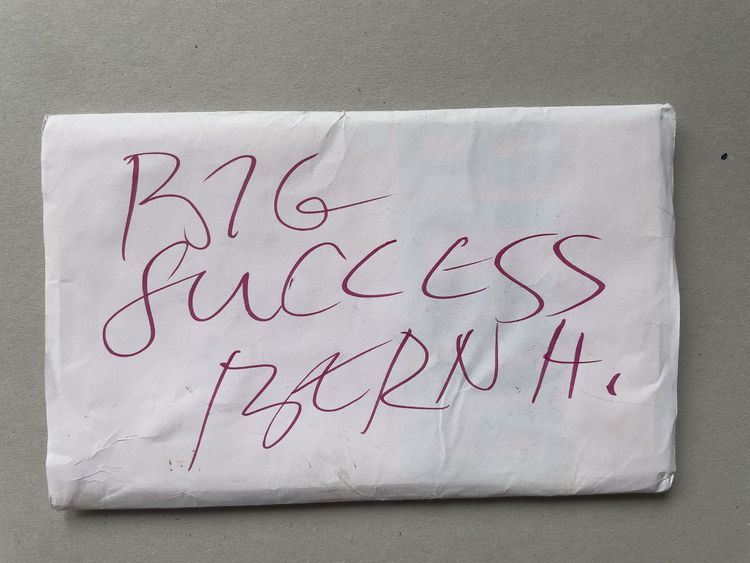 BIG
SUCCESS
BERN H.